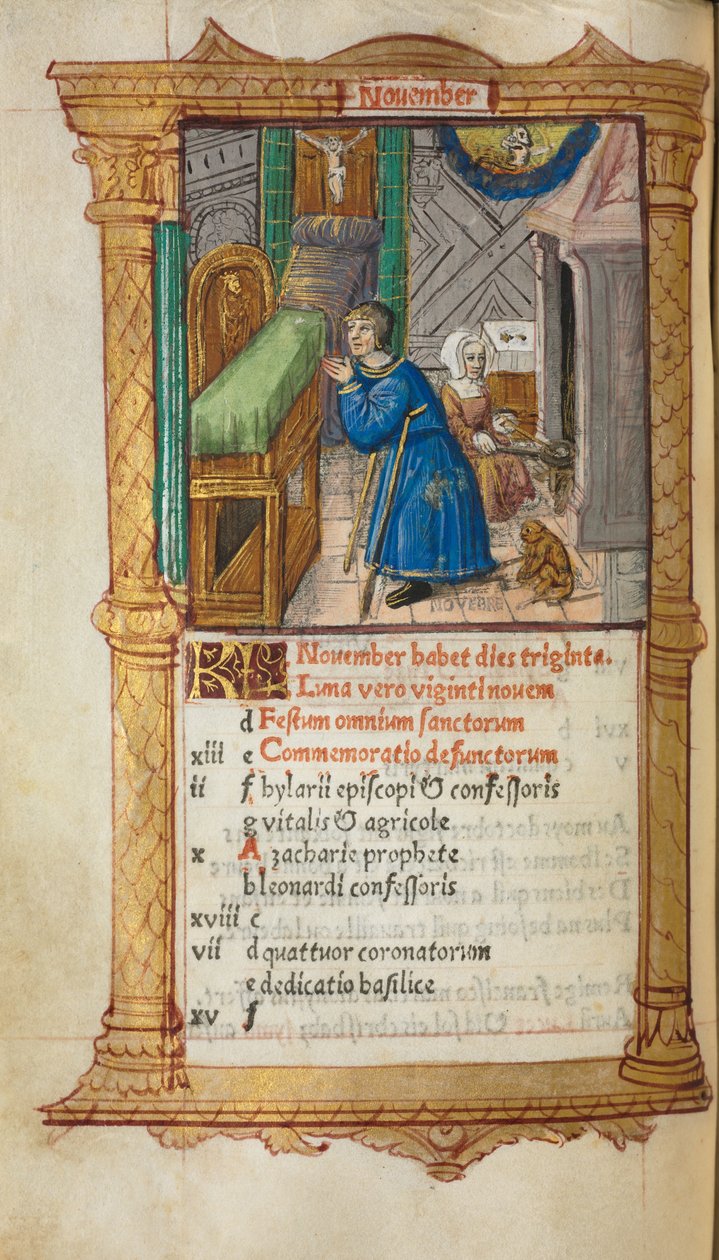 Nouember
NOVEBRE
KL Nouember habet dies triginta.
Luna vero viginti nouem
d Feſtum omnium ſanctorum
xiii e Commemoratio defunctorum
ii f hylarii epiſcopi & confeſſoris
g vitalis & agricole
x A zacharie prophete
b leonardi confeſſoris
xviii c
vii d quattuor coronatorum
e dedicatio baſilice
xv f